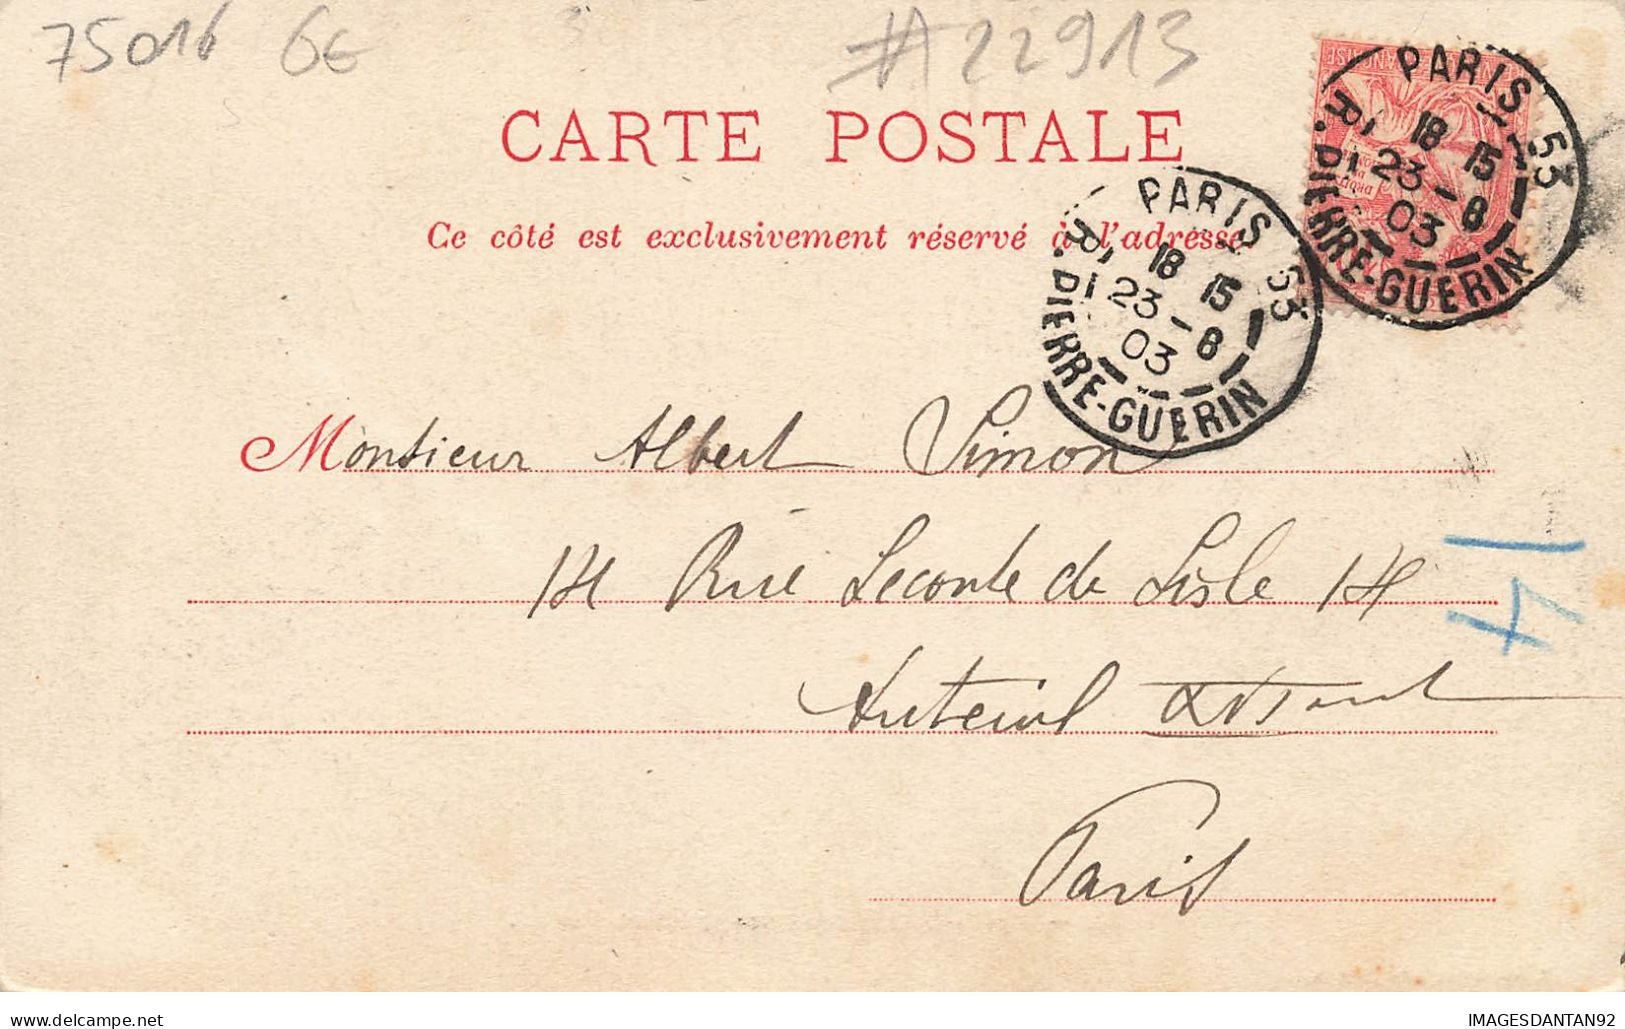 75016 6E
#22913
CARTE POSTALE
Ce côté est exclusivement réservé à l'adresse
PARIS 53
18 15
23 - 8
03
R. PIERRE-GUERIN
PARIS 53
18 15
23 - 8
03
R. PIERRE-GUERIN
Monsieur Albert Simon
14
Rue Leconte de Lisle
Auteuil
Paris
IMAGESDANTAN92